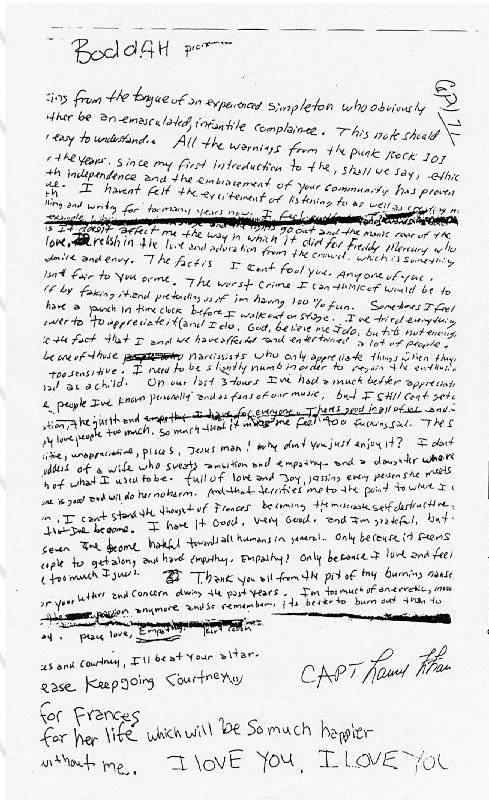 BoddAH
:ing from the tongue of an experienced simpleton who obviously
:ther be an emasculated, infantile complainee. This note should
r easy to understand. All the warnings from the punk Rock 101
r the years. since my first introduction to the, shall we say, ethic
th independence and the embracement of your community has proven
ue. I havent felt the excitement of listening to as well as creating m
th
ding and writing for too many years now. I feel
lights go out and the manic roar of the
is it doesnt affect me the way in which it did for freddy Mercury who
love, relish in the love and adoration from the crowd. which is something
dmire and envy. The fact is I cant fool you. Any one of you.
isnt fair to you or me. The worst crime I can think of would be to
ff by faking it and pretending as if im having 100% fun. Sometimes I feel
have a punch in time clock before I walk out on stage. I've tried everything
ower to appreciate it (and I do, God, believe me I do, but its not enough
e the fact that I and we have affected and entertained a lot of people.
be one of those narcissists who only appreciate things when they
too sensitive. I need to be slightly numb in order to regain the enthusia
had as a child. On our last 3 tours I've had a much better appreciati
e people I've known personally and as fans of our music, but I still cant get o
ation, the guilt and empathy I have for everyone. Theres good in all of us and
ply love people too much. So much that it makes me feel too fucking sad. The s
itive, unappreciative, pisces, Jesus man! why dont you just enjoy it? I dont
oddess of a wife who sweats ambition and empathy and a daughter who re
h of what I used to be. full of love and Joy, kissing every person she meets
one is good and will do her no harm. And that terrifies me to the point to where I c
n. I cant stand the thought of Frances becoming the miserable self destructive,
that Ive become. I have it Good. very Good. and Im grateful, but
seven Ive become hateful towards all humans in general. Only because it seems
eople to get along and have empathy. Empathy! Only because I love and feel
e too much I guess. Thank you all from the pit of my burning nause
or your letters and concern during the past years. I'm too much of an erratic, moo
passion anymore and so remember, its better to burn out than to
ay. peace, love, Empathy. kurt cobain
ces and Courtney, I'll be at your altar.
ease Keep going Courtney
for Frances
for her life which will be so much happier
without me. I LOVE YOU, I LOVE YOU
CAPT